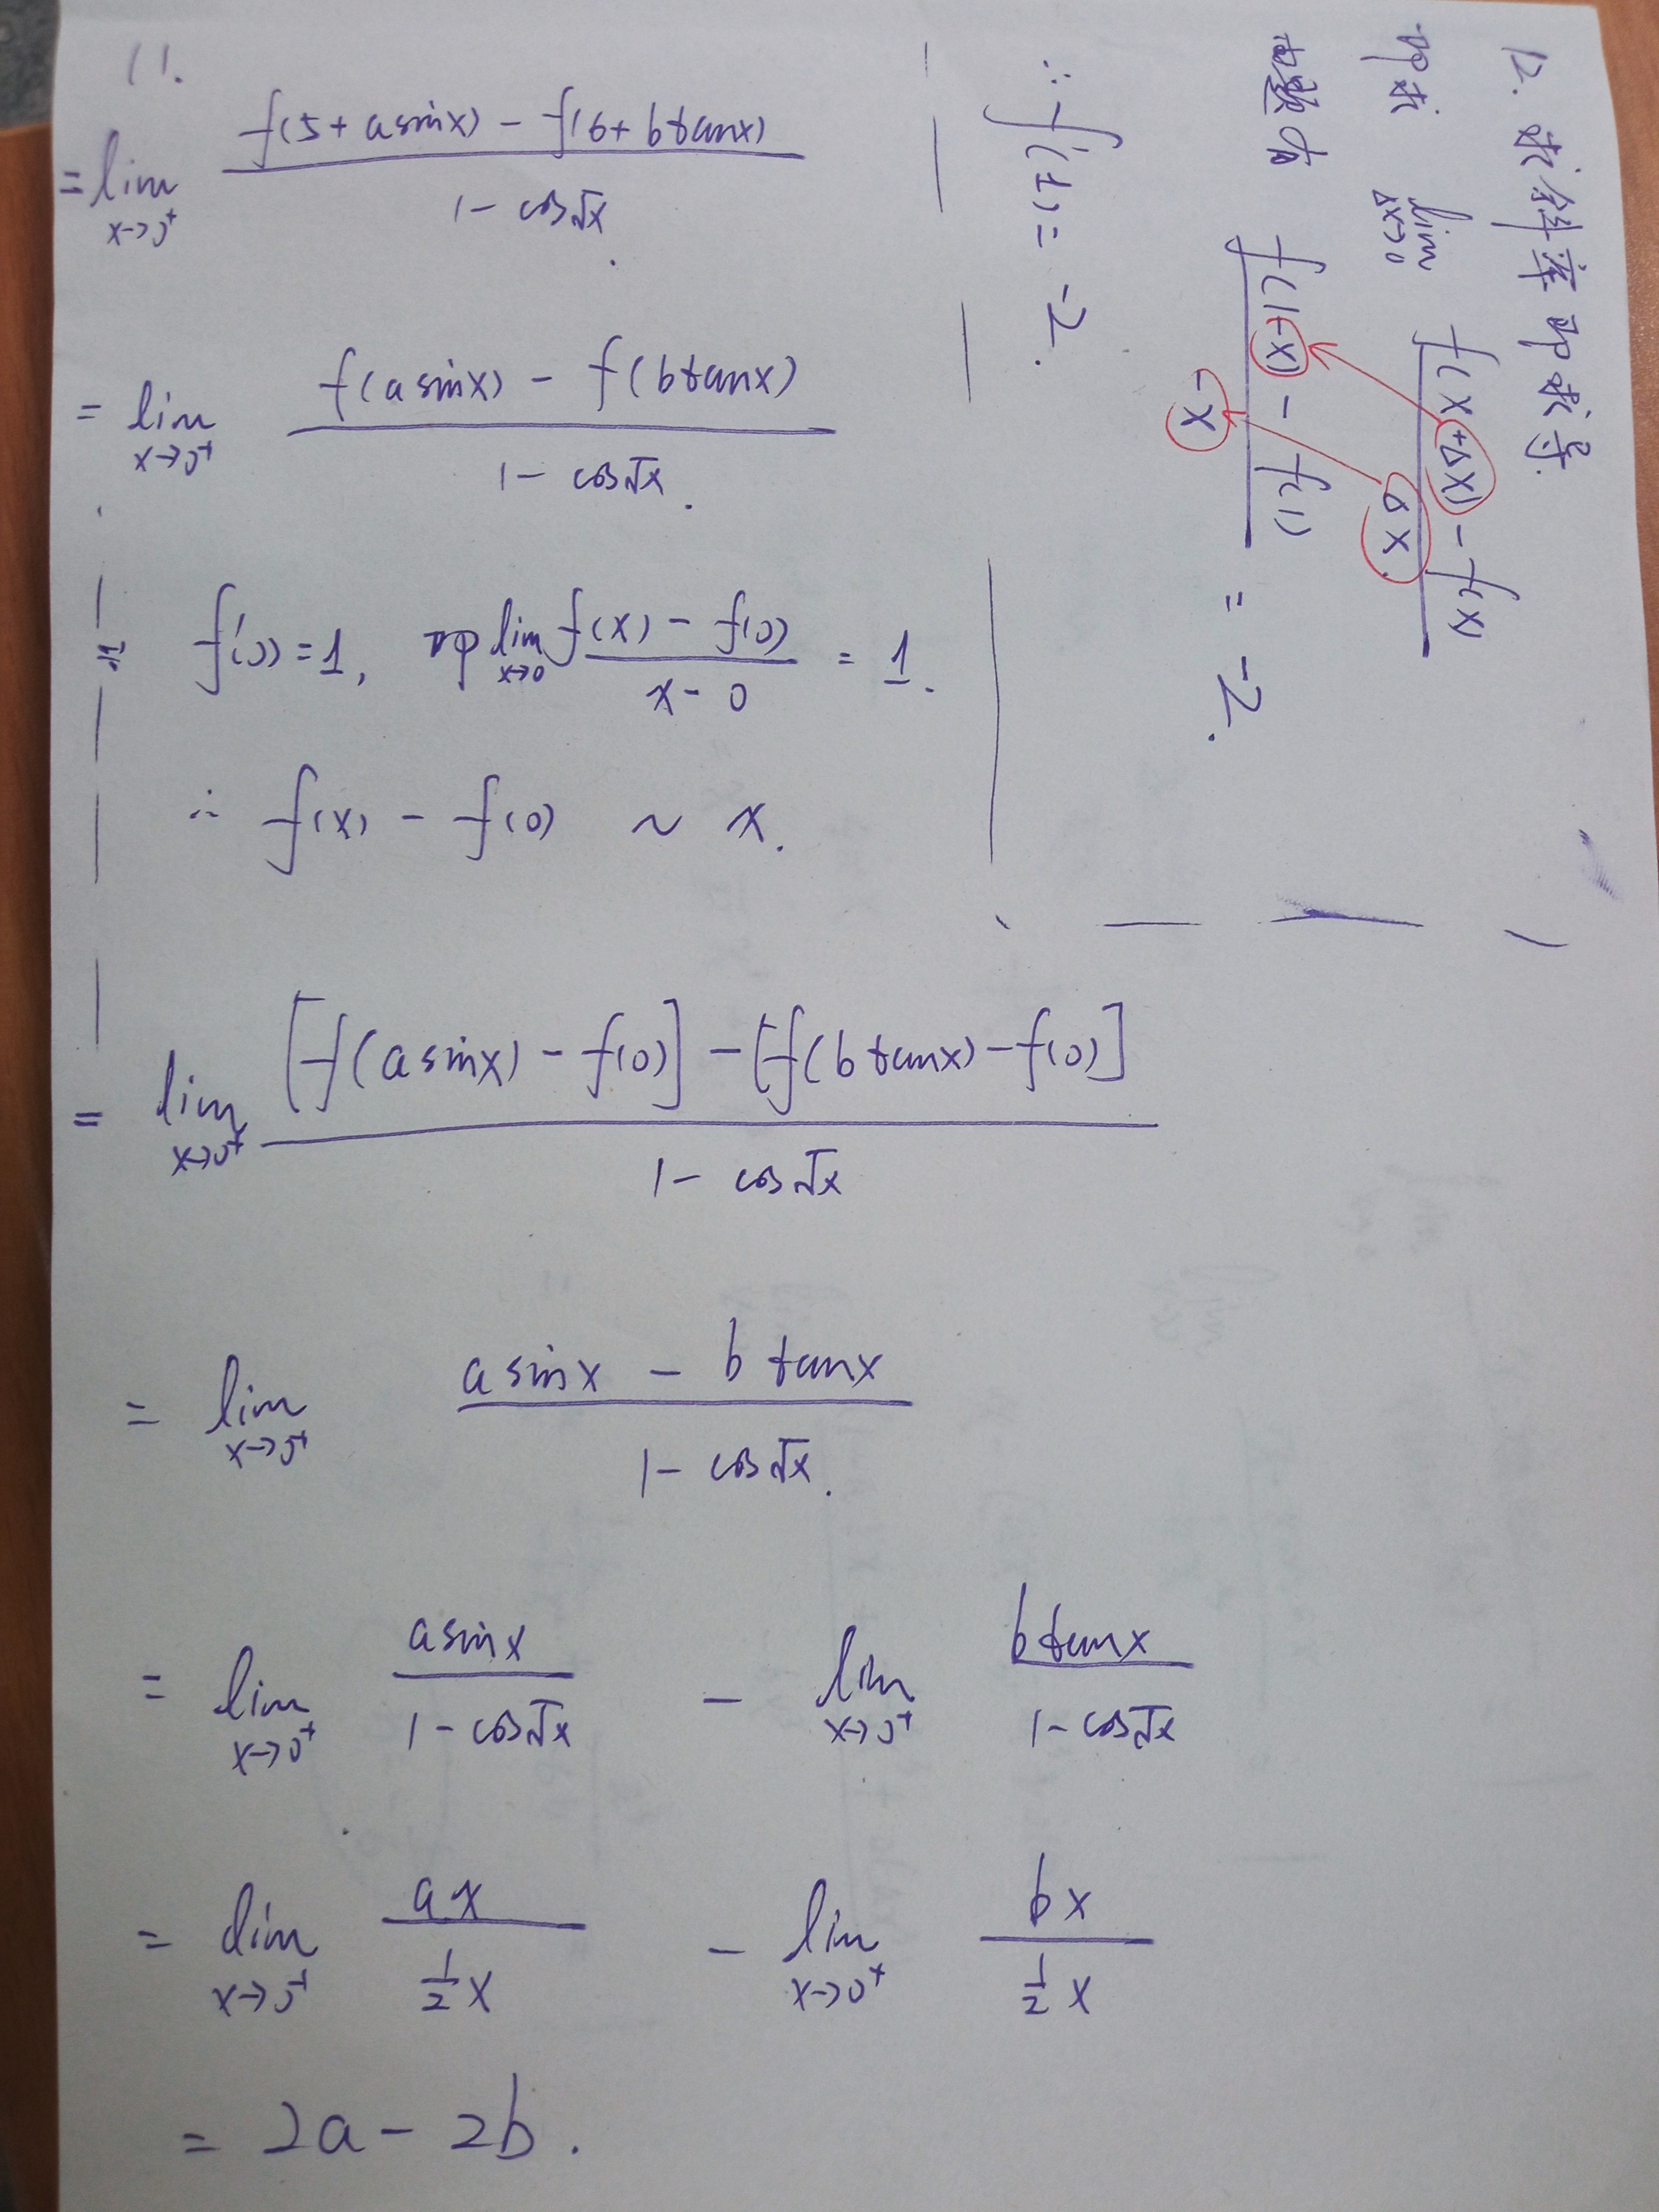 11.
= lim x→0⁺ f(5+asinx) - f(6+btanx) / 1 - cos√x.
= lim x→0⁺ f(asinx) - f(btanx) / 1 - cos√x.
f'(0) = 1, 即 lim x→0 f(x) - f(0) / x - 0 = 1.
∴ f(x) - f(0) ~ x.
= lim x→0⁺ [f(asinx) - f(0)] - [f(btanx) - f(0)] / 1 - cos√x
= lim x→0⁺ asinx - btanx / 1 - cos√x.
= lim x→0⁺ asinx / 1 - cos√x - lim x→0⁺ btanx / 1 - cos√x
= lim x→0⁺ ax / ½x - lim x→0⁺ bx / ½x
= 2a - 2b.
12. 求斜率即求导.
即求 lim Δx→0 f(x+Δx) - f(x) / Δx.
由题有 f(1-x) - f(1) / -x = -2.
∴ f'(1) = -2.